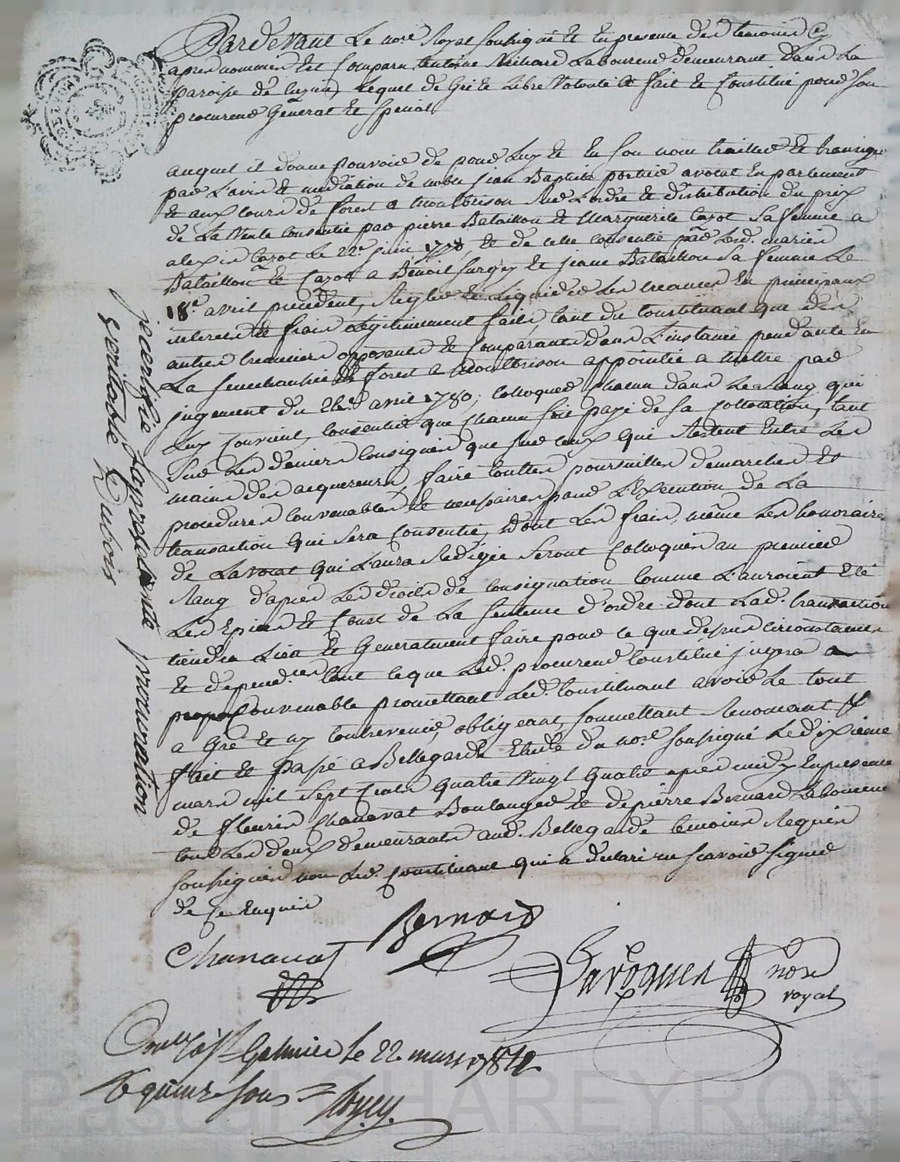 Pardevant Le no.re Royal soussigné et En presence des temoins Cy
apres nommés est Comparu Antoine Laboureur demeurant dans La
paroise de Lequel de Gré et Libre Volonté a fait et Constitué pour son
procureur General et Special
auquel il donne pouvoir de pour Luy et En son nom traitter et transiger
par L'avis et mediation de noble Jean Baptiste portier avocat En parlement
et aux cours de forest a montbrison sur L'ordre et distribution du prix
de La Vente Consentie par pierre Bataillon et Marguerite Cazot sa femme a
alexis Cazot le 22.e juin 1778 et de celle Consentie par Lesd. mariés
Bataillon et Cazot a Benoit et Jeane Bataillon sa femme Le
18.e avril precedent, Regler et Liquider Les Creances En principaux
interets et frais Legitimement faits tant du Constituant que des
autres Creanciers opposants et Comparants dans L'instance pendante En
La senechaussée de forest a Montbrison appointée a mettre par
jugement du avril 1780; Colloquer chacun dans Le Rang qui
Luy Convient, Consentir que chacun soit payé de sa Collocation, tant
sur Les deniers Consignés que sur Ceux qui Restent Entre Les
mains des acquereurs, faire touttes poursuittes demarches et
procedures Convenables et necessaires pour L'Execution de La
transaction qui sera Consentie, dont Les frais, même Les honoraires
de L'avocat qui L'aura Redigée seront Colloqués au premier
Rang d'apres Les droits de Consignation Comme L'auroient Eté
Les Epices et Coust de La sentence d'ordre dont Lad. transaction
tiendra Lieu et Generalment faire pour ce que dessus circonstances
et depend.ces tout ce que Led. procureur Constitué jugera a
propos Convenable promettant Led Constituant avoir Le tout
a Gré et ny Contrevenir, obligeant, soumettant Renonceant
fait et passé a Bellegarde Etude du no.re soussigné Le dixieme
mars mil sept Cents quatre Vingt quatre apres midy En presence
de fleury Chanavat Boulanger et de pierre Bernard Laboureur
tous Les deux demeurants aud. Bellegarde temoins Requis
soussignés non Led. Constituant qui a declaré ne scavoir signer
de ce Enquis
Bernard
Chanavat
no.re
royal
Galmier le 22. mars
je certifie La presente procuration
veritable Dubois
Pascal CHAREYRON